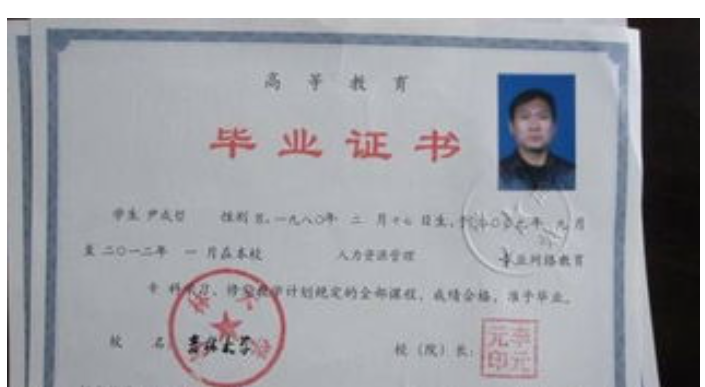 高等教育
毕业证书
学生 尹成哲 性别 男,一九八〇年 二 月十七 日生,于二〇〇九年 九 月
至 二〇一二年 一 月在本校 人力资源管理 专业网络教育
专 科学习,修完教学计划规定的全部课程,成绩合格,准予毕业。
校 名 吉林大学 校(院)长: 李元元印